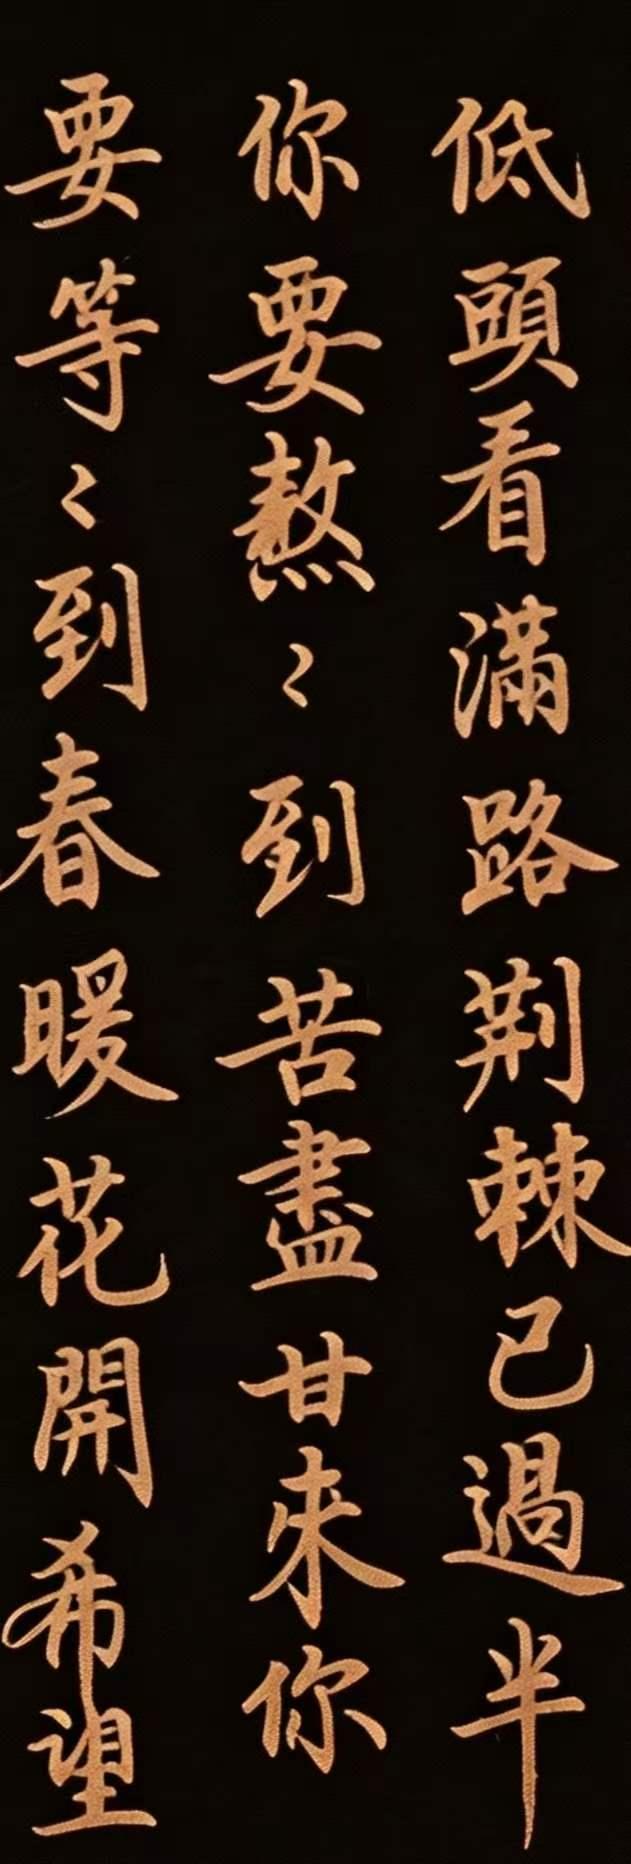 低頭看滿路荆棘已過半
你要熬〻到苦盡甘來你
要等〻到春暖花開希望